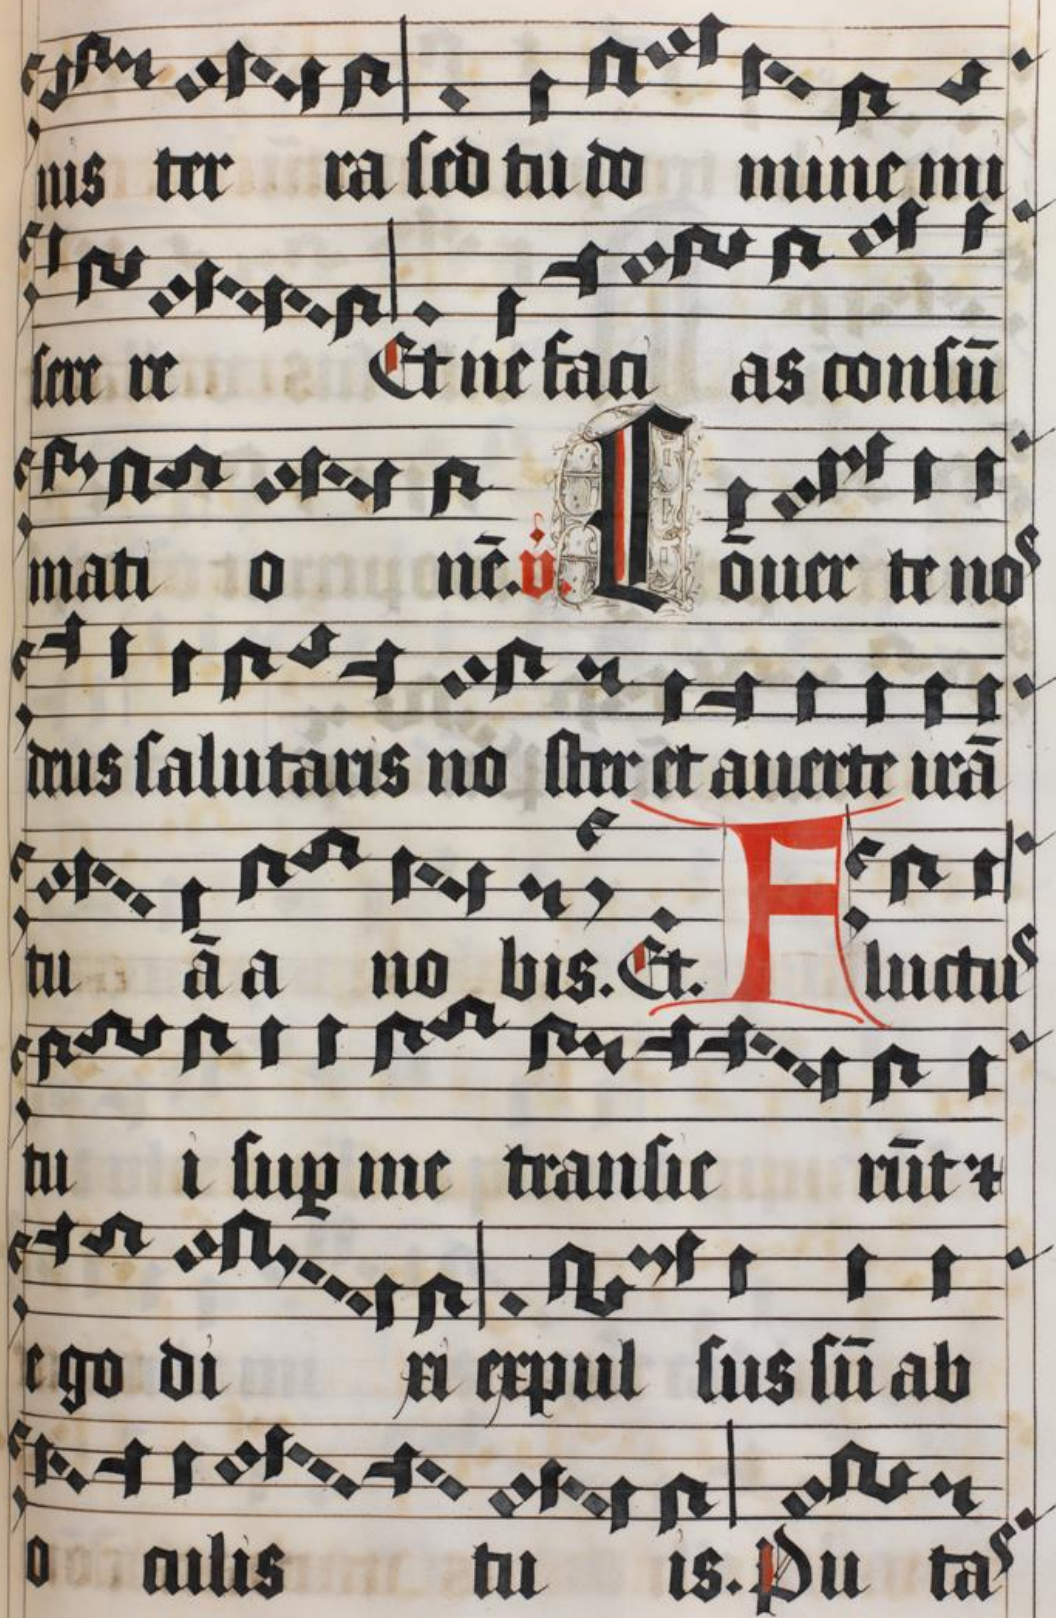 nis ter ra sed tu do mine mi
sere re Et ne faci as consū
mati o nē. v̇. Cōuer te nos
deus salutaris no ster et auerte irā
tu ā a no bis. Et. Fluctus
tu i sup me transie rūt ⁊
ego di xi expul sus sū ab
o culis tu is. Pu tas